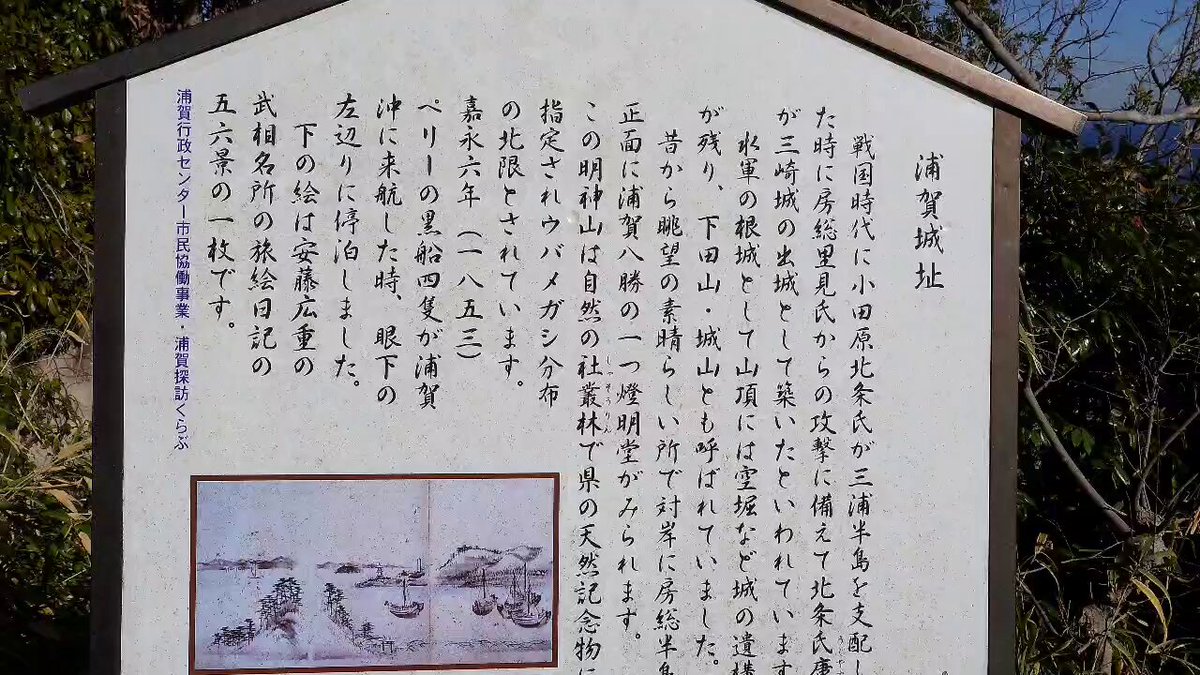 浦賀城址
戦国時代に小田原北条氏が三浦半島を支配し
た時に房総里見氏からの攻撃に備えて北条氏康
が三崎城の出城として築いたといわれています
水軍の根城として山頂には空堀など城の遺構
が残り、下田山・城山とも呼ばれていました。
昔から眺望の素晴らしい所で対岸に房総半島
正面に浦賀八勝の一つ燈明堂がみられます。
この明神山は自然の社叢林で県の天然記念物に
しゃそうりん
指定されウバメガシ分布
の北限とされています。
嘉永六年（一八五三）
ペリーの黒船四隻が浦賀
沖に来航した時、眼下の
左辺りに停泊しました。
下の絵は安藤広重の
武相名所の旅絵日記の
五六景の一枚です。
浦賀行政センター市民協働事業・浦賀探訪くらぶ